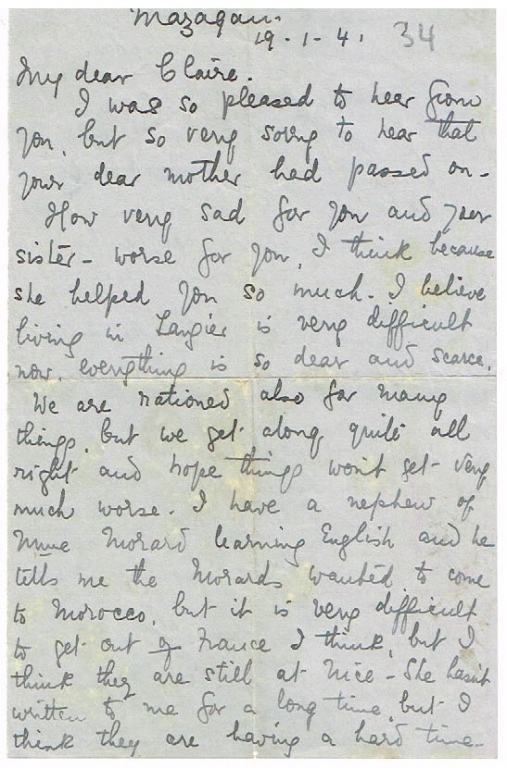 Mazagan.
19-1-41 34
My dear Claire.
I was so pleased to hear from
you, but so very sorry to hear that
your dear mother had passed on-
How very sad for you and your
sister- worse for you, I think because
she helped you so much. I believe
living in Tangier is very difficult
now. everything is so dear and scarce.
We are rationed also for many
things, but we get along quite all
right and hope things won't get very
much worse. I have a nephew of
Mme Morard learning English and he
tells me the Morards wanted to come
to Morocco, but it is very difficult
to get out of France I think, but I
think they are still at Nice - She hasn't
written to me for a long time, but I
think they are having a hard time-